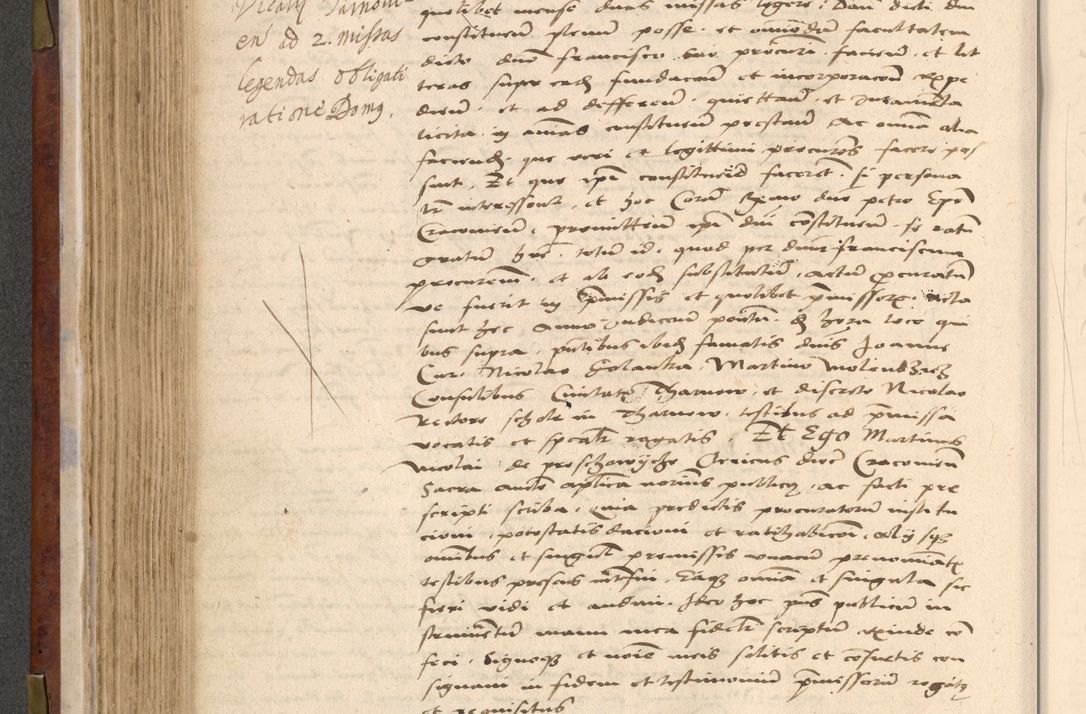 Vicarij Tarnovi
en ad 2. missas
legendas obligati
ratione Domq.
quolibet mense duas missas legere. Dan
constituen plenum posse et omnimodam facultatem
dicto dno Francisco suo procuri faciend et lit
teras super eadem fundacoem et incorporacoem expe
diend. et ad defferend. quiettand et Juramenta
licita in animas constituen prestand Ac omnia alia
faciend. que veri et legittimi procures facere pos
sunt. Et que ipsi constituen facerent. si persona
lr interessent, et hoc Coram Rmo dno petro Epo
Cracovien, promitten ipsi dni constituen. se ratum
gratum hre. totum id. quod per dnum franciscum
procurem. et ab eodem substitutum. actum procuratum
ve fuerit in pmissis et quolibet pmissorum. Acta
sunt hoc Anno Indicoem pontu. hora loco qui
bus supra, pntibus ibidem famatis dnis Joanne
Cur. Nicolao Golanka, Martino molend
Consulibus Civitatis Tharnow, et discreto Nicolao
Rectore schole in Tharnow, testibus ad pmissa
vocatis et specialr rogatis. Et Ego Martinus
Nicolai de proschowycze Clericus dioc Cracovien
Sacra autte aplica notarius publicus, ac facti pre
scripti scriba, Quia predictis procuratorum institu
cioni, potestatis dacioni et ratihabicoi, alijsq
omibus et singulis premissis unacum prenominatis
testibus presens interfui, Eaque omnia et singula sic
fieri vidi et audivi. Ideo hoc pns publicum in
strumentum manu mea fidelr scriptum, exinde co
feci. Signoque et noie meis solitis et consuetis con
signavi in fidem et testimonium pmissorum rogatus
et requisitus